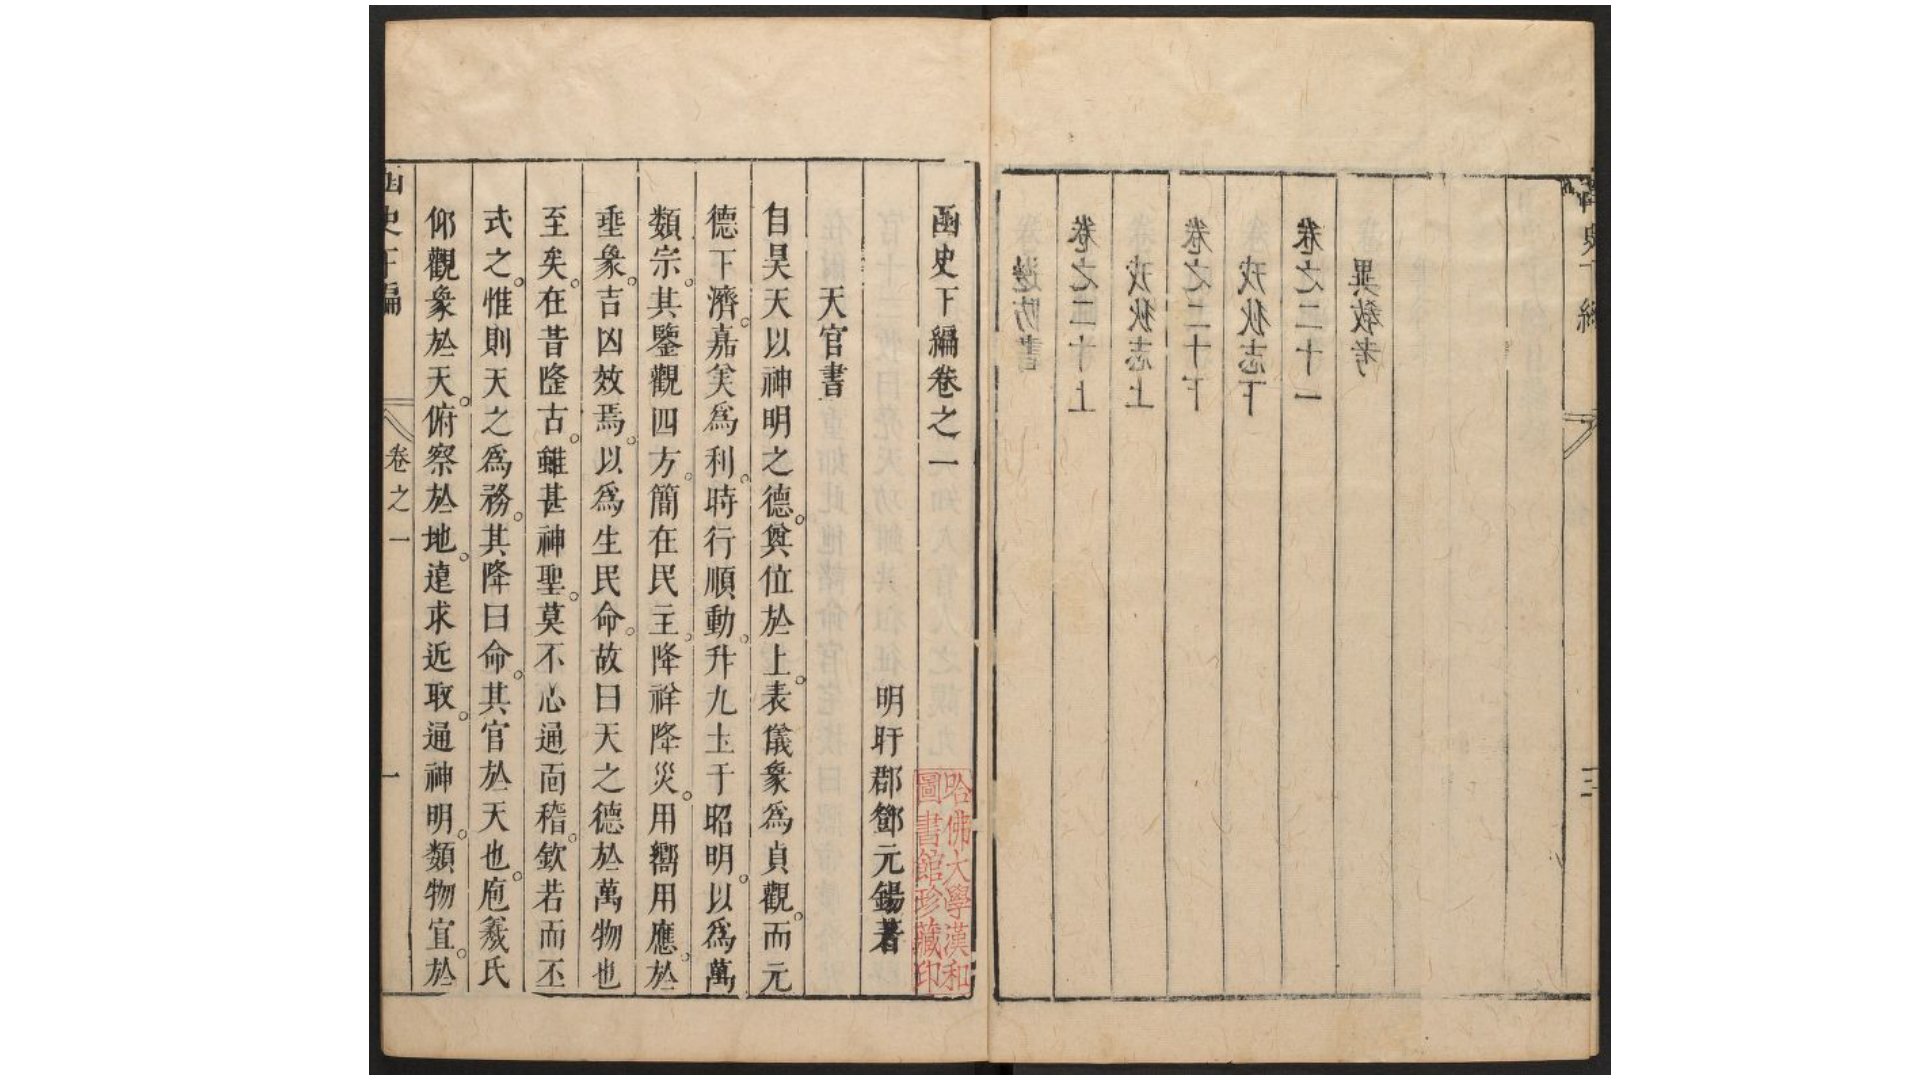 邊防書
卷之二十上
戎狄志上
卷之二十下
戎狄志下
卷之二十一
異教考
函史下編
三
函史下編卷之一
明盱郡鄧元錫著
哈佛大學漢和
圖書館珍藏印
天官書
自昊天以神明之德。奠位於上。表儀象爲貞觀。而元
德下濟。嘉美爲利。時行順動。升九土于昭明。以爲萬
類宗。其鑒觀四方。簡在民主。降祥降災。用嚮用應。於
垂象。吉凶效焉。以爲生民命。故曰天之德於萬物也
至矣。在昔隆古。雖甚神聖。莫不心通面稽。欽若而丕
式之。惟則天之爲務。其降曰命。其官於天也。庖羲氏
仰觀象於天。俯察於地。遠求近取。通神明。類物宜。於
函史下編 卷之一 一